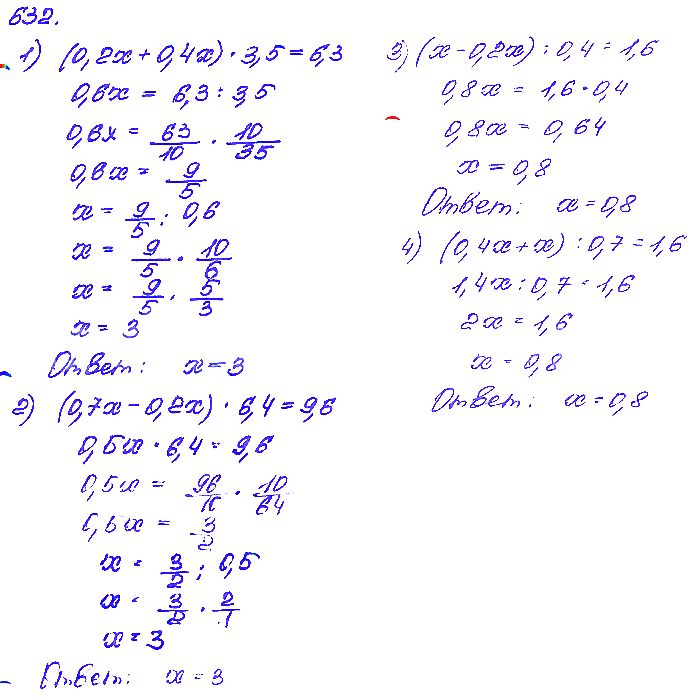 632.
1) (0,2x + 0,4x) · 3,5 = 6,3
0,6x = 6,3 : 3,5
0,6x = 63/10 · 10/35
0,6x = 9/5
x = 9/5 : 0,6
x = 9/5 · 10/6
x = 9/5 · 5/3
x = 3
Ответ: x = 3
2) (0,7x - 0,2x) · 6,4 = 9,6
0,5x · 6,4 = 9,6
0,5x = 96/10 · 10/64
0,5x = 3/2
x = 3/2 : 0,5
x = 3/2 · 2/1
x = 3
Ответ: x = 3
3) (x - 0,2x) : 0,4 = 1,6
0,8x = 1,6 · 0,4
0,8x = 0,64
x = 0,8
Ответ: x = 0,8
4) (0,4x + x) : 0,7 = 1,6
1,4x : 0,7 = 1,6
2x = 1,6
x = 0,8
Ответ: x = 0,8